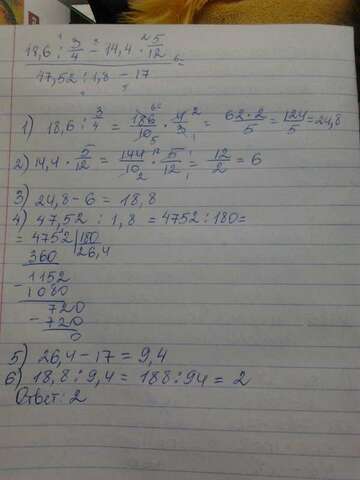 18,6 : 3/4 - 14,4 · 5/12
47,52 : 1,8 - 17
1) 18,6 : 3/4 = 186/10 · 4/3 = 62·2/5 = 124/5 = 24,8
2) 14,4 · 5/12 = 144/10 · 5/12 = 12/2 = 6
3) 24,8 - 6 = 18,8
4) 47,52 : 1,8 = 4752 : 180 =
= 4752 | 180
360 26,4
- 1152
1080
720
- 720
0
5) 26,4 - 17 = 9,4
6) 18,8 : 9,4 = 188 : 94 = 2
Ответ: 2